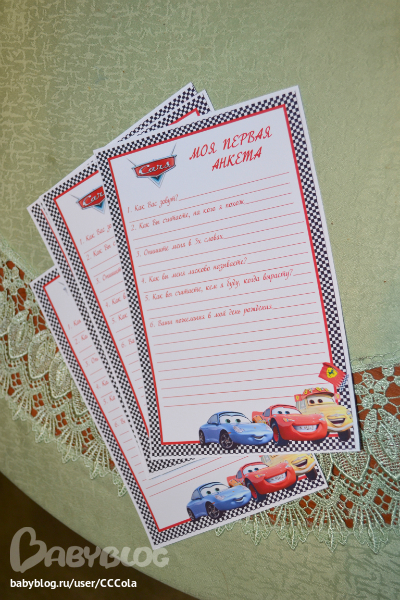 Cars
МОЯ ПЕРВАЯ
АНКЕТА
1. Как Вас зовут?
2. Как Вы считаете, на кого я похож
3. Опишите меня в 3х словах
4. Как вы меня ласково называете?
5. Как вы считаете, кем я буду, когда вырасту?
6. Ваши пожелания в мой день рождения
Cars
1. Как Вас
2. Как Вы
3. Опишите
BABYBLOG
babyblog.ru/user/CCCola